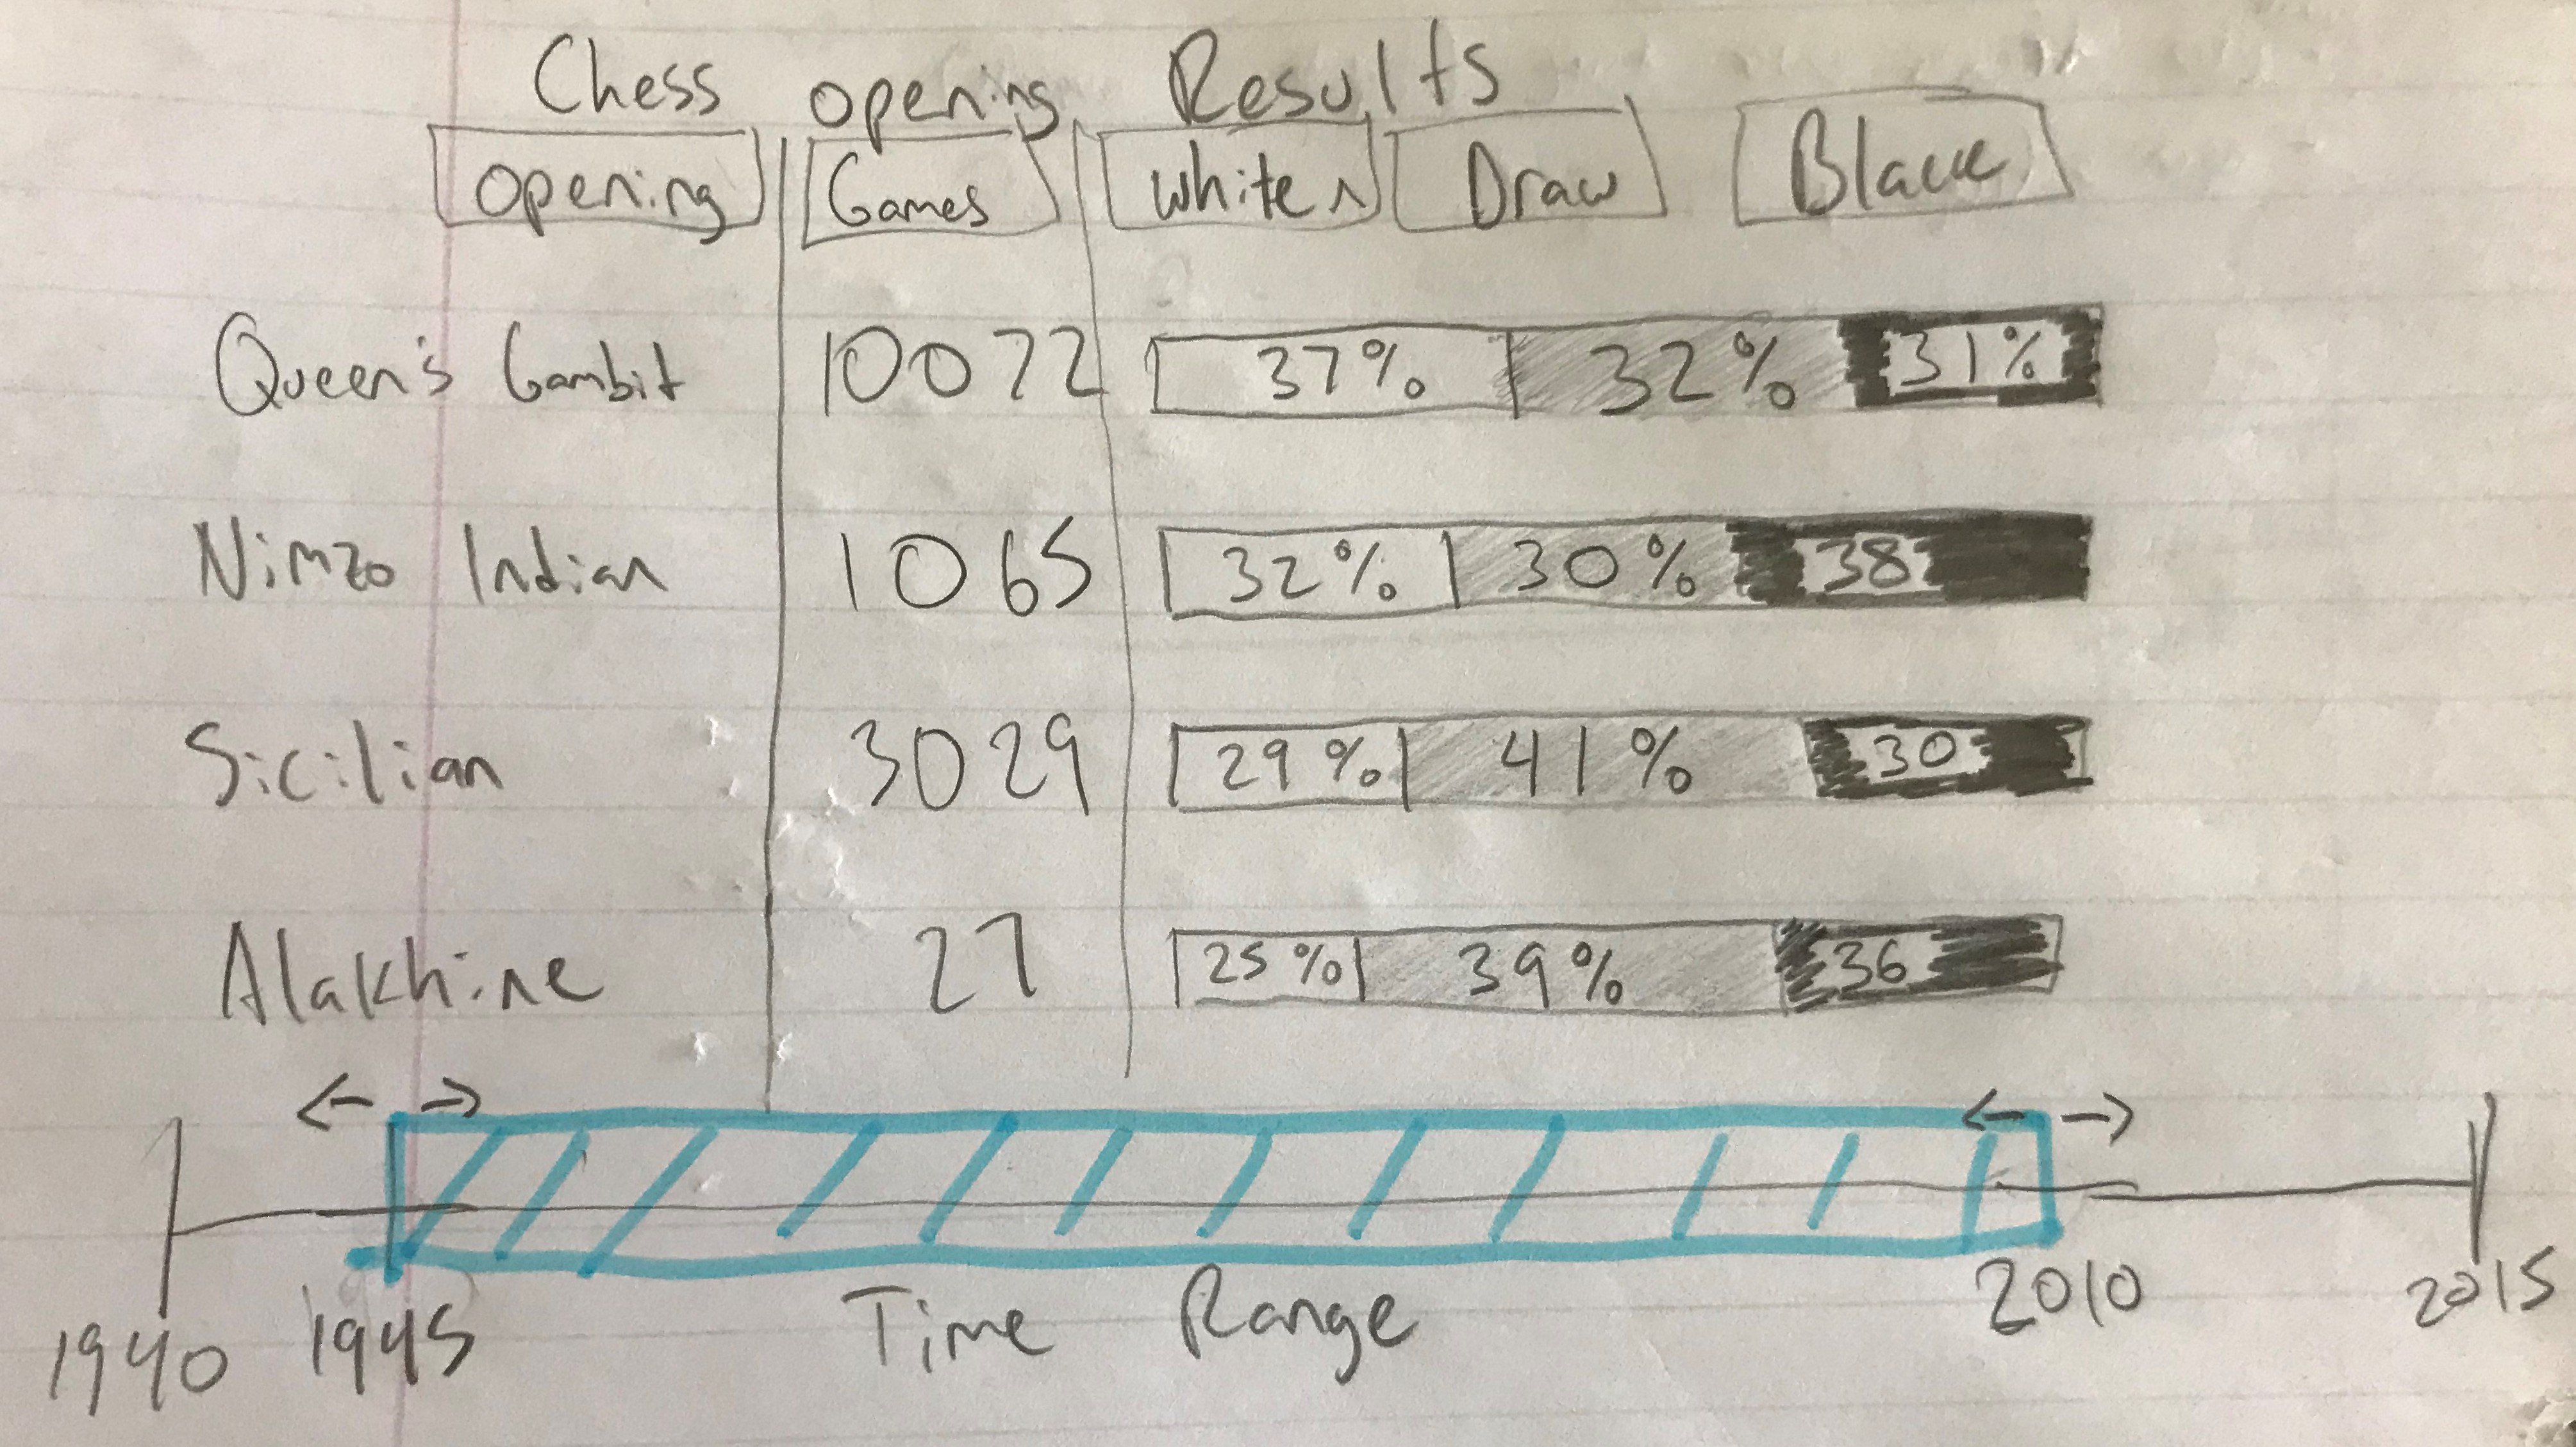 Chess opening Results
opening Games White ^ Draw Black
Queen's Gambit 10072 37% 32% 31%
Nimzo Indian 1065 32% 30% 38
Sicilian 3029 29% 41% 30
Alakhine 27 25% 39% 36
← → ← →
1940 1945 Time Range 2010 2015